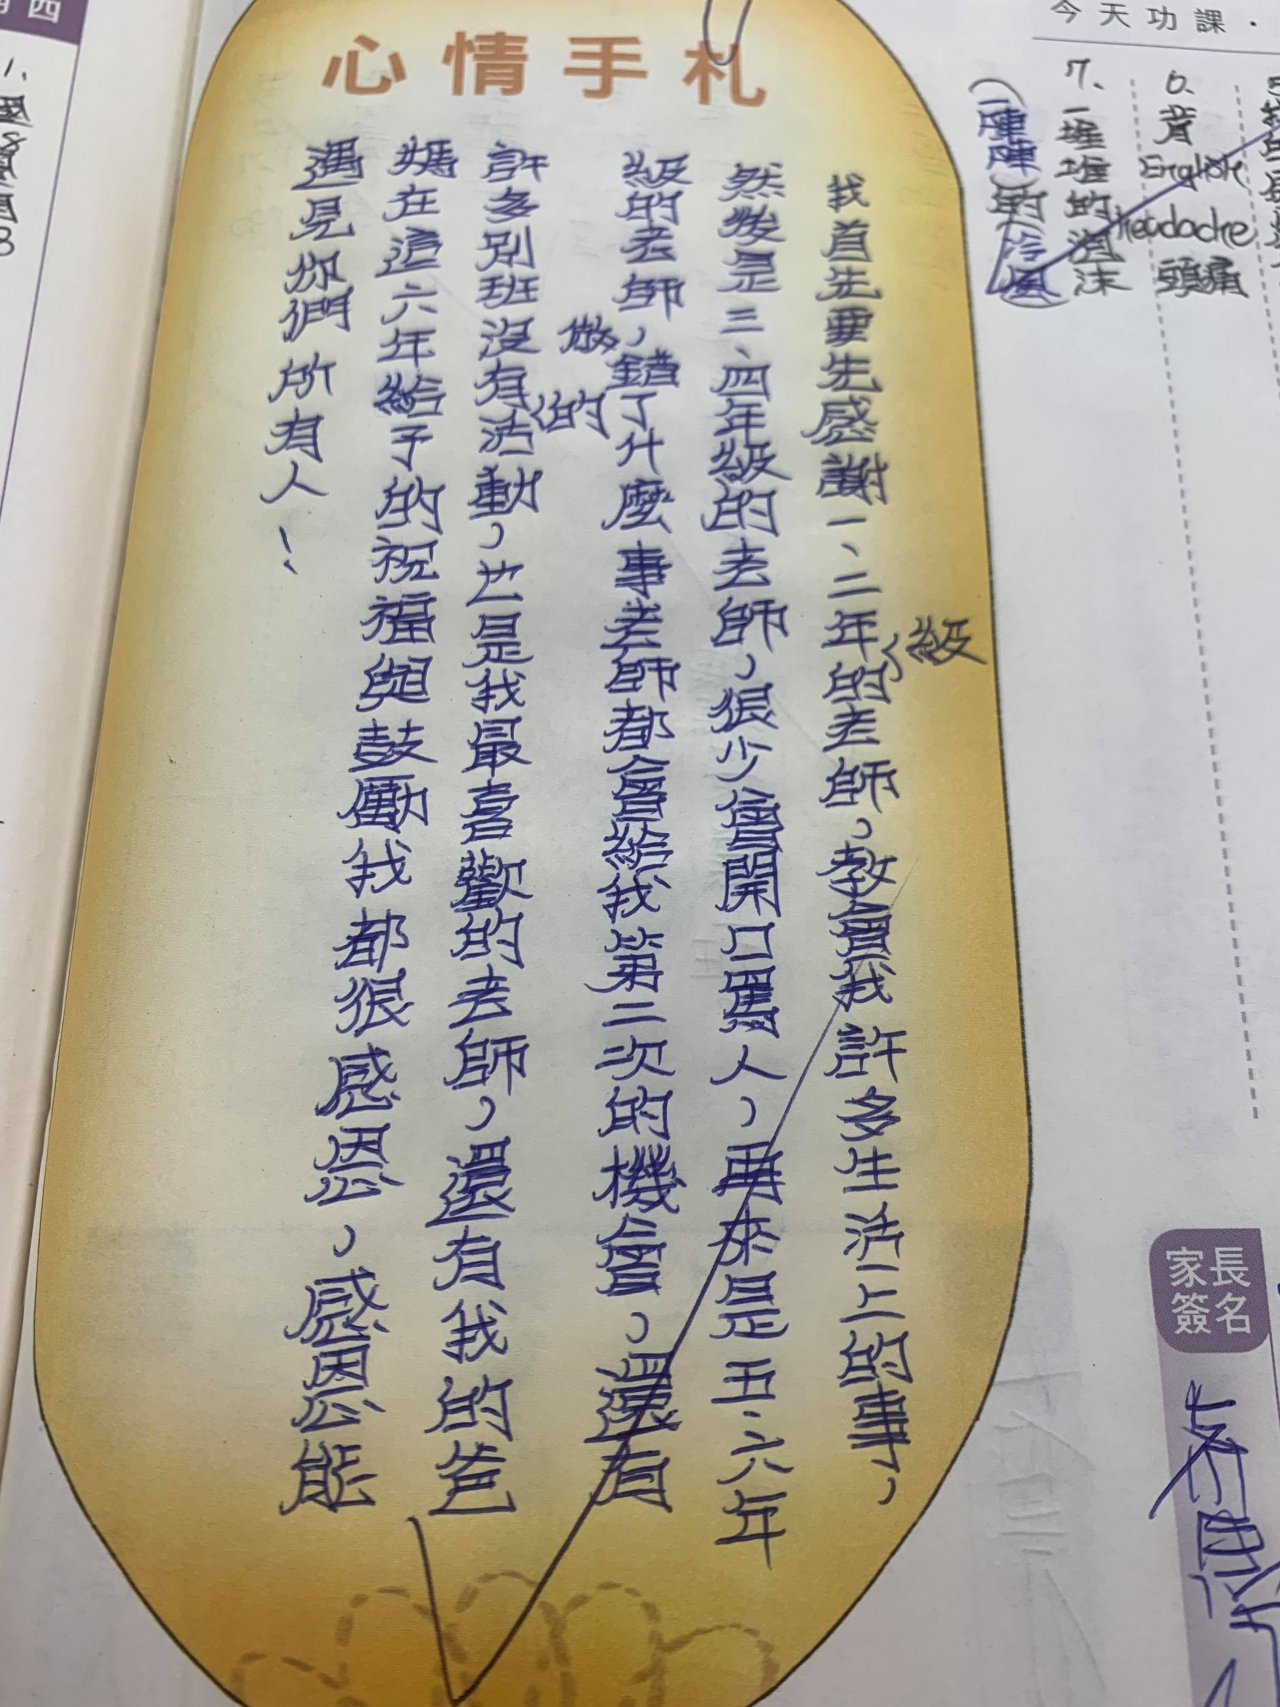 心情手札
我首先要先感謝一、二年級的老師，教會我許多生活上的事，
然後是三、四年級的老師，很少會開口罵人，再來是五、六年
級的老師，做錯了什麼事老師都會給我第二次的機會，還有
許多別班沒有的活動，也是我最喜歡的老師，還有我的爸
媽在這六年給予的祝福與鼓勵我都很感恩，感恩能
遇見你們所有人！
今天功課
6. 背 English headache 頭痛
7. 一堆堆的泡沫
（一陣陣）的冷風
家長簽名
四
1.